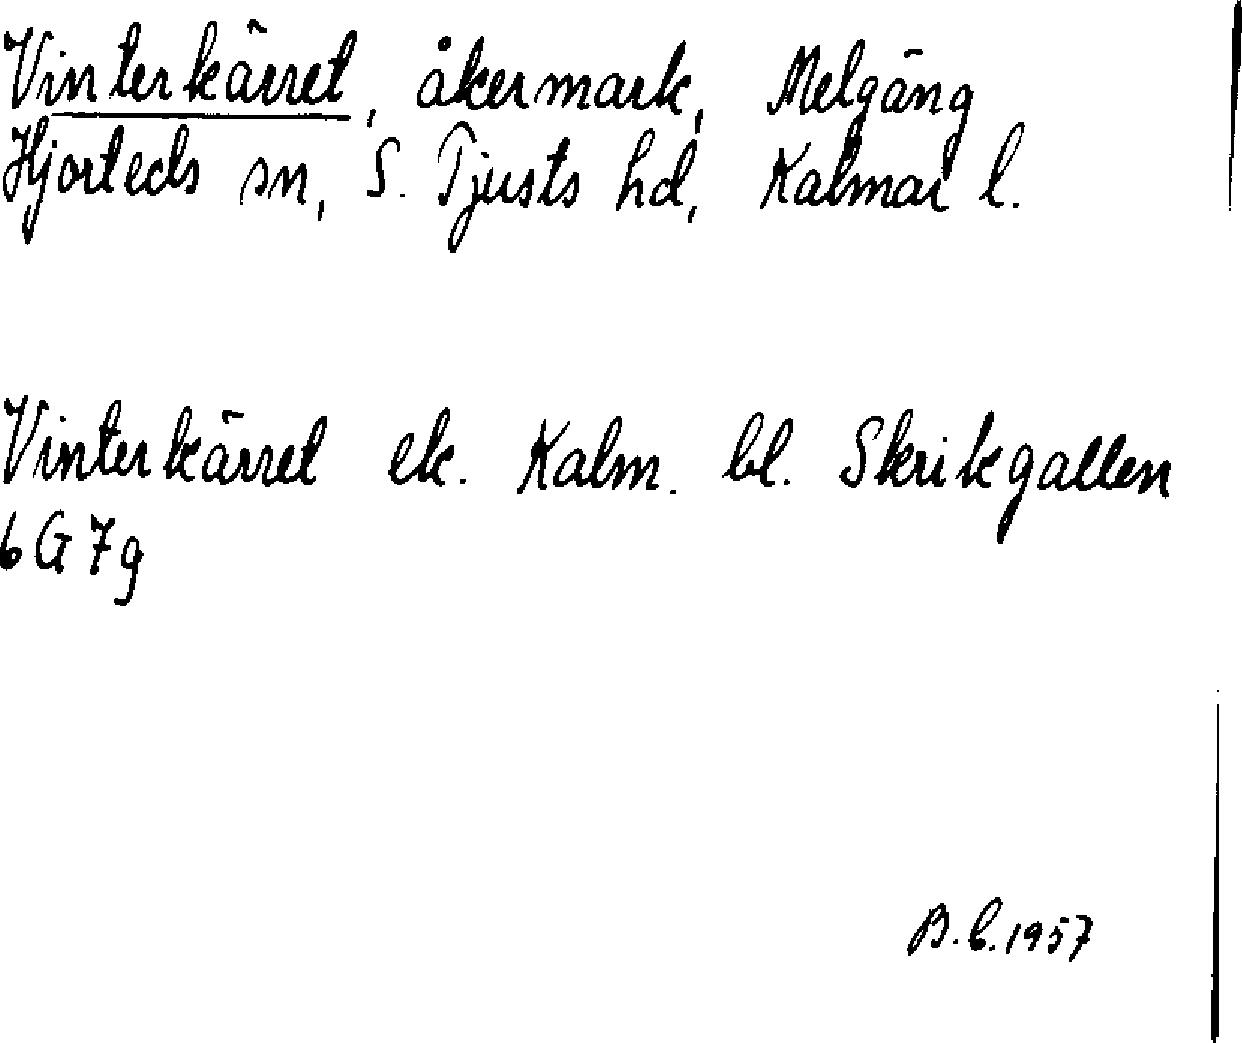 Vinterkärret, åkermark, Melgäng
Hjorteds sn, S. Tjusts hd, Kalmar l.
Vinterkärret ek. Kalm. bl. Skrikgallen
6G7g
B.b.1957